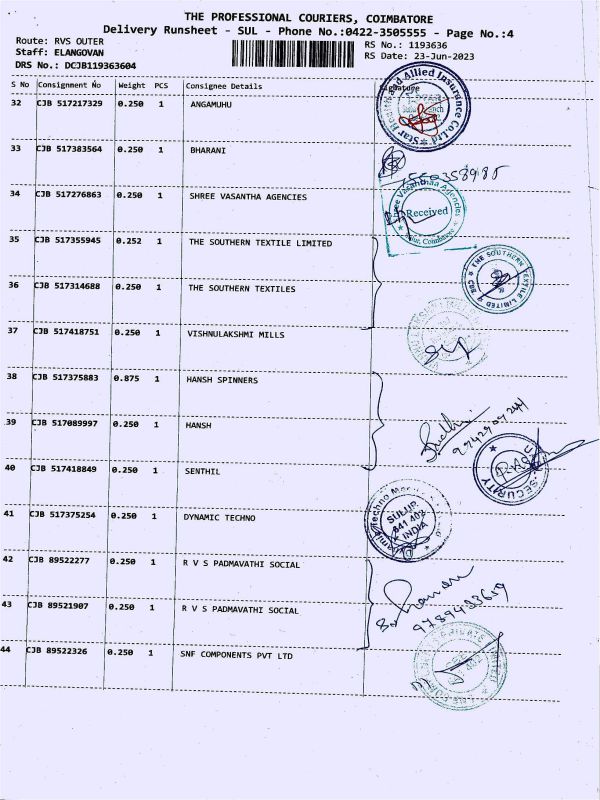 THE PROFESSIONAL COURIERS, COIMBATORE
Delivery Runsheet - SUL - Phone No.:0422-3505555 - Page No.:4
Route: RVS OUTER
RS No.: 1193636
Staff: ELANGOVAN
RS Date: 23-Jun-2023
DRS No.: DCJB119363604
S No Consignment No Weight PCS Consignee Details Signature
32 CJB 517217329 0.250 1 ANGAMUHU
and Allied Insurance Co.Ltd ★ Star
33 CJB 517383564 0.250 1 BHARANI
34 CJB 517276863 0.250 1 SHREE VASANTHA AGENCIES
Received
35 CJB 517355945 0.252 1 THE SOUTHERN TEXTILE LIMITED
THE SOUTHERN TEXTILE LIMITED
36 CJB 517314688 0.250 1 THE SOUTHERN TEXTILES
37 CJB 517418751 0.250 1 VISHNULAKSHMI MILLS
38 CJB 517375883 0.875 1 HANSH SPINNERS
39 CJB 517089997 0.250 1 HANSH
SECURITY
40 CJB 517418849 0.250 1 SENTHIL
41 CJB 517375254 0.250 1 DYNAMIC TECHNO
SULUR
641 402
INDIA
42 CJB 89522277 0.250 1 R V S PADMAVATHI SOCIAL
43 CJB 89521907 0.250 1 R V S PADMAVATHI SOCIAL
44 CJB 89522326 0.250 1 SNF COMPONENTS PVT LTD